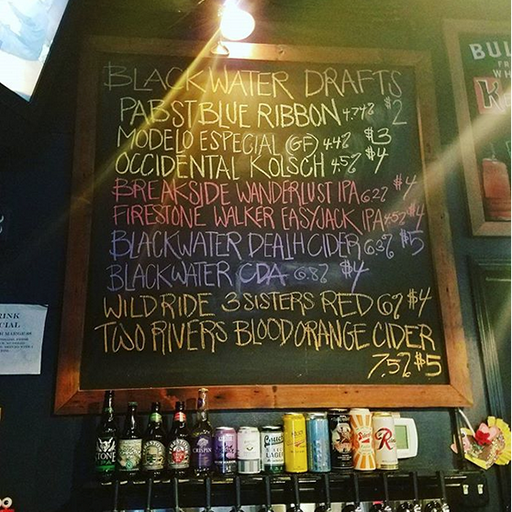 BLACKWATER DRAFTS
PABST BLUE RIBBON 4.74% $2
MODELO ESPECIAL (GF) 4.4% $3
OCCIDENTAL KOLSCH 4.5% $4
BREAKSIDE WANDERLUST IPA 6.2% $4
FIRESTONE WALKER EASYJACK IPA 4.5% $4
BLACKWATER DEATH CIDER 6.3% $5
BLACKWATER CDA 6.8% $4
WILD RIDE 3 SISTERS RED 6% $4
TWO RIVERS BLOOD ORANGE CIDER
7.5% $5
BUL
FR
WH
K
RINK
CIAL
STONE
CRISPIN
R